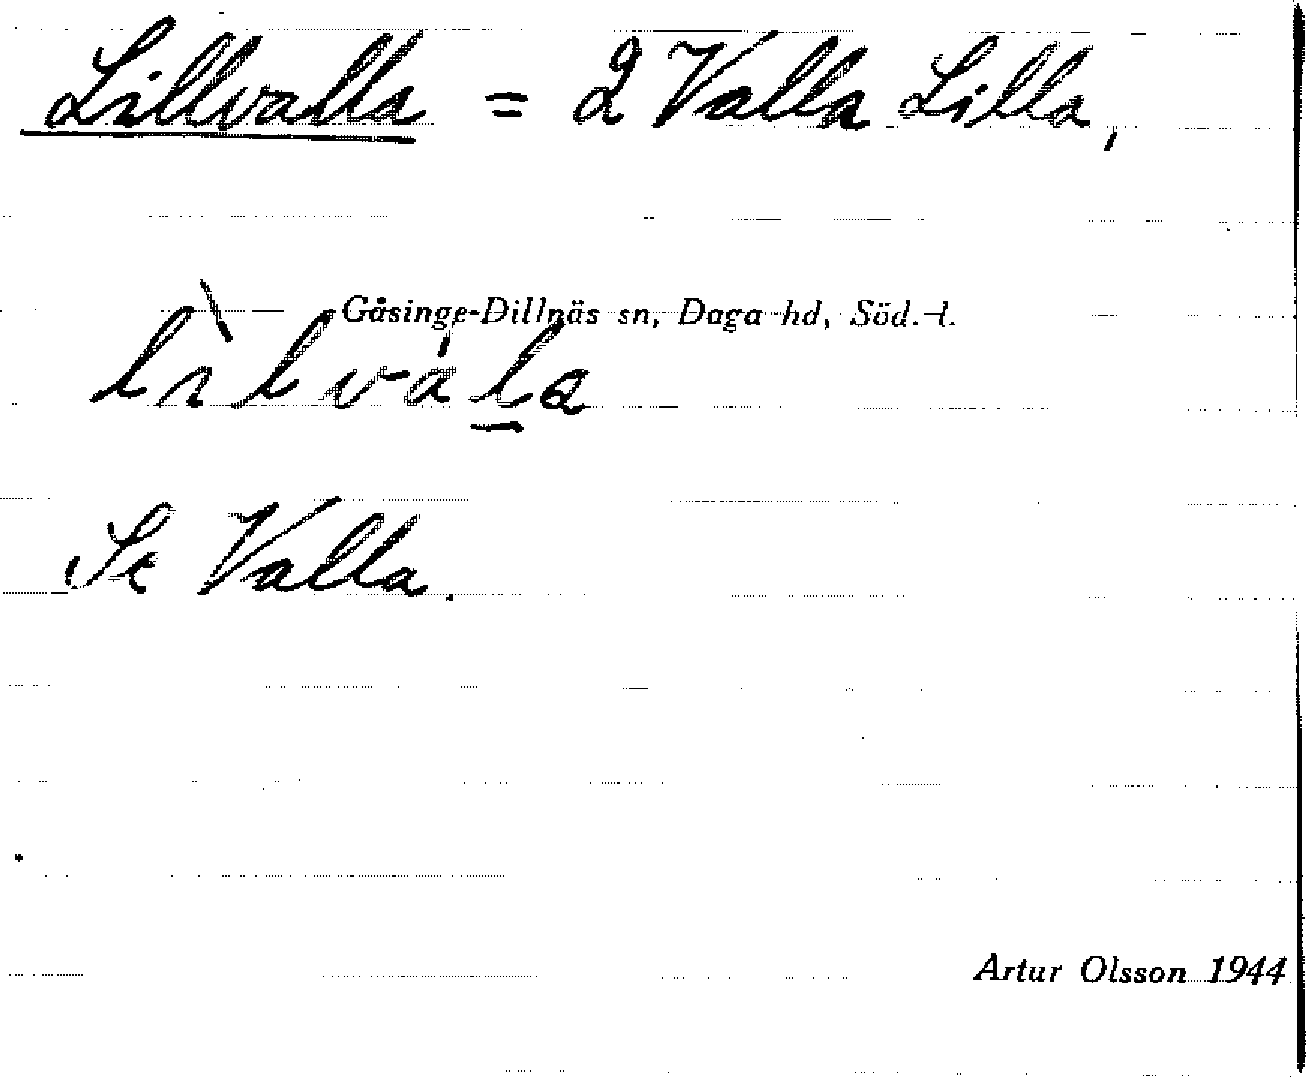 Lillvalla = 2 Valla Lilla,
Gåsinge-Dillnäs sn, Daga hd, Söd.-l.
lìlvála
Se Valla.
Artur Olsson 1944